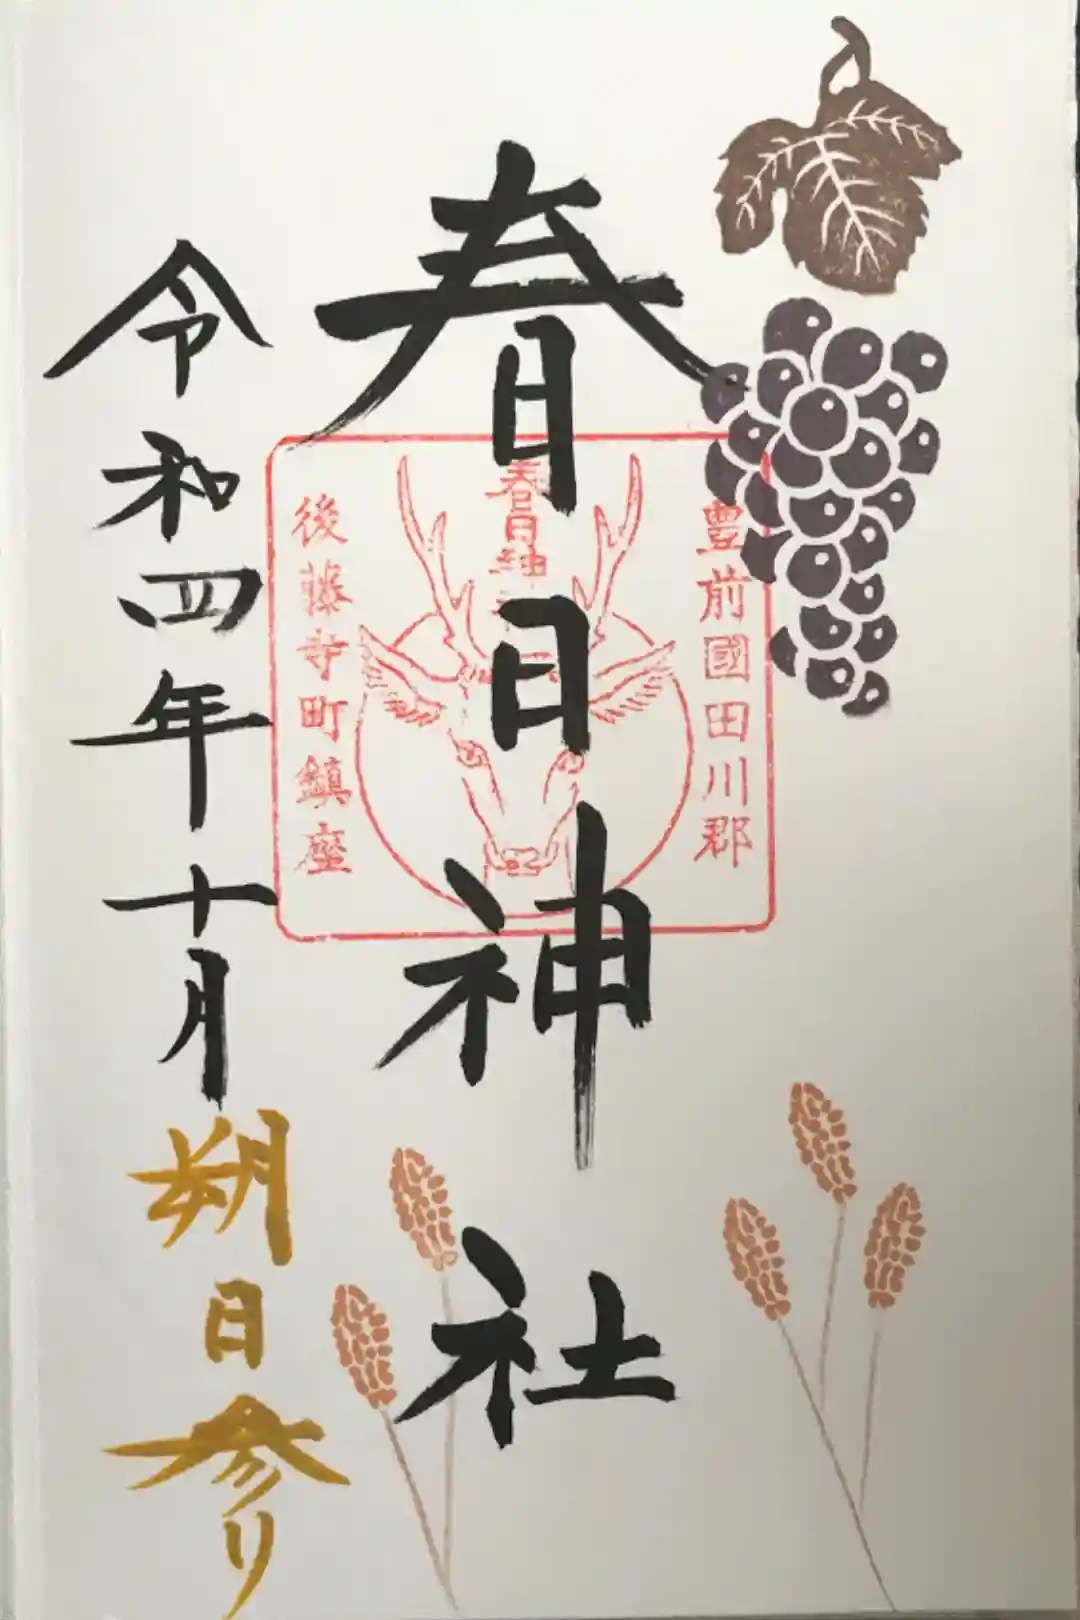 春日神社
豊前國田川郡
春日神
後藤寺町鎮座
令和四年十月朔日参り